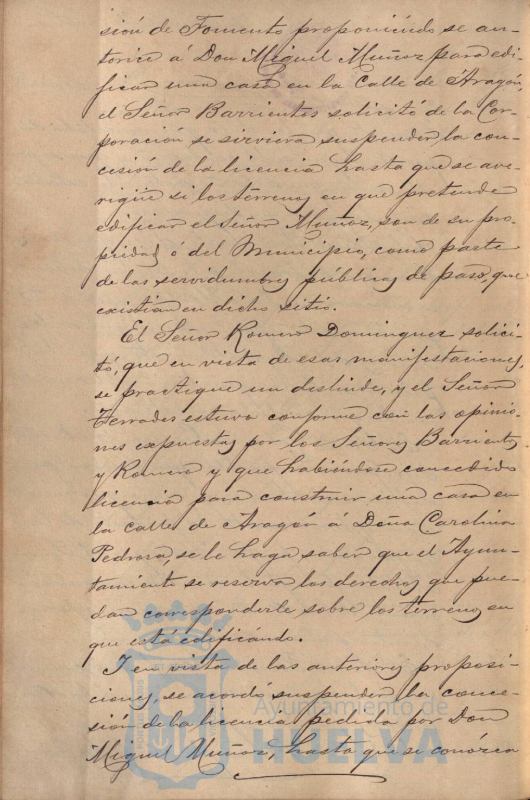 sión de Fomento proponiendo se au-
torice á Don Miguel Muñoz para edi-
ficar una casa en la Calle de Aragón,
el Señor Barrientos solicitó de la Cor-
poración se sirviera suspender la con-
cesión de la licencia hasta que se ave-
rigüe si los terrenos en que pretende
edificar el Señor Muñoz, son de su pro-
piedad ó del Municipio, como parte
de las servidumbres públicas de paso, que
existian en dicho sitio.
El Señor Romero Dominguez solici-
tó, que en vista de esas manifestaciones,
se practique un deslinde, y el Señor
Terrades estuvo conforme con las opinio-
nes expuestas por los Señores Barrientos
y Romero y que habiéndose concedido
licencia para construir una casa en
la calle de Aragón á Doña Carolina
Pedrosa, se le haga saber que el Ayun-
tamiento se reserva los derechos que pue-
dan corresponderle sobre los terrenos en
que está edificándo.
I en vista de las anteriores proposi-
ciones, se acordó suspender la conce-
sión de la licencia pedida por Don
Miguel Muñoz, hasta que se conozca
Ayuntamiento de
HUELVA